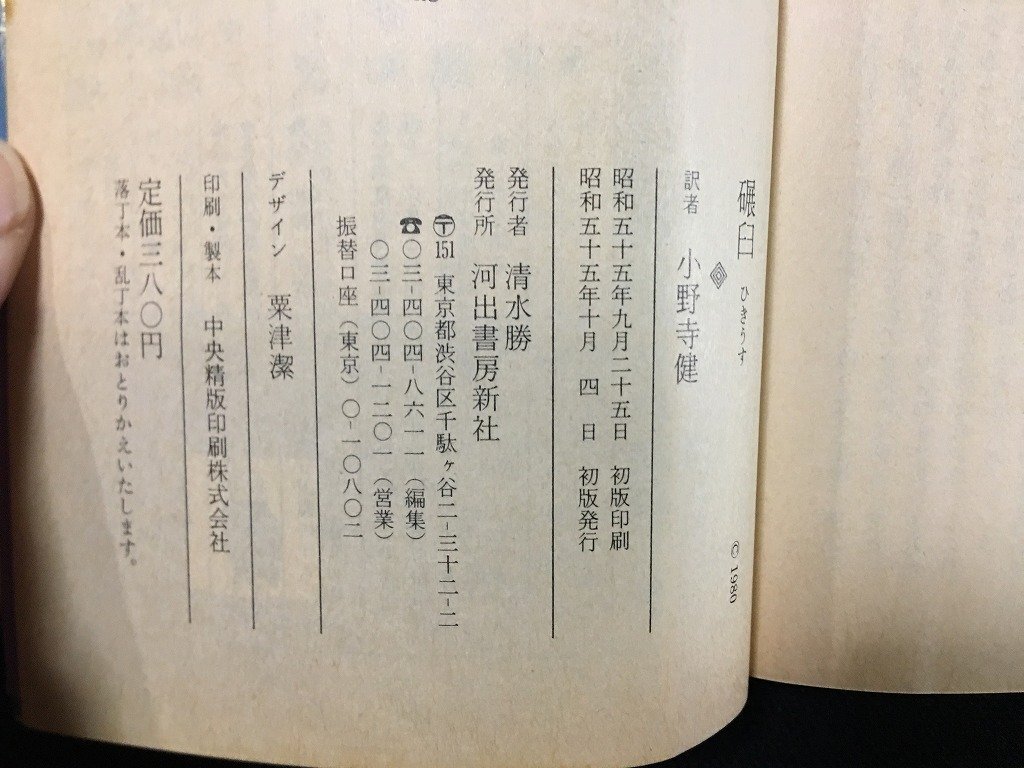 碾臼
ひきうす
© 1980
訳者 小野寺健
昭和五十五年九月二十五日 初版印刷
昭和五十五年十月 四 日 初版発行
発行者 清水勝
発行所 河出書房新社
〒151 東京都渋谷区千駄ヶ谷二−三十二−二
☎〇三−四〇四−八六一一(編集)
〇三−四〇四−一二〇一(営業)
振替口座(東京)〇−一〇八〇二
デザイン 粟津潔
印刷・製本 中央精版印刷株式会社
定価三八〇円
落丁本・乱丁本はおとりかえいたします。